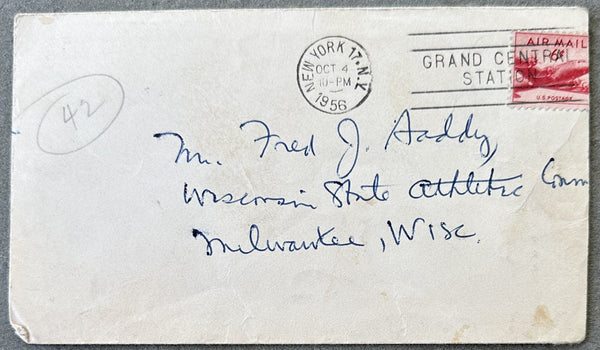 NEW YORK 17. N.Y.
OCT 4
10-PM
1956
GRAND CENTRAL
STATION
AIR MAIL
6¢
U.S. POSTAGE
42
Mr. Fred J. Saddy,
Wisconsin State Athletic Comm
Milwaukee, Wisc.